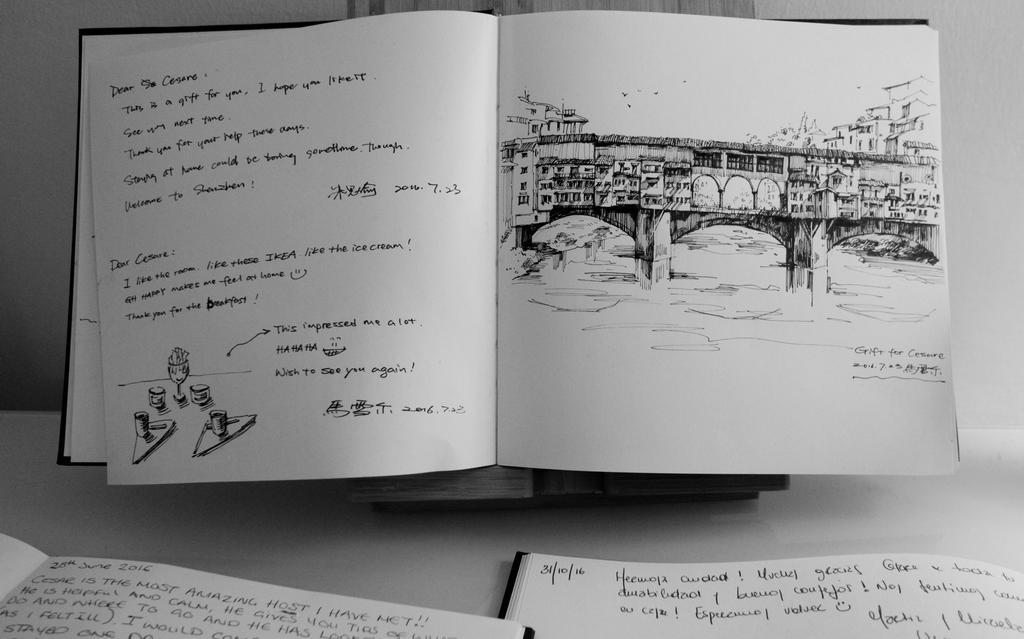 Dear Cesare:
This is a gift for you, I hope you like it.
See you next time.
Thank you for your help these days.
Staying at home could be boring sometime, though.
Welcome to Shenzhen!
2016.7.23
Dear Cesare:
I like the room, like these IKEA like the ice cream!
GH HAPPY makes me feel at home
Thank you for the breakfast!
This impressed me a lot.
HAHAHA
Wish to see you again!
馬雪 2016.7.23
Gift for Cesare
2016.7.23 馬雪
28th June 2016
CESAR IS THE MOST AMAZING HOST I HAVE MET!!
HE IS HELPFUL AND CALM, HE GIVES YOU TIPS OF WHAT
DO AND WHERE TO GO AND HE HAS
AS I FELT ILL). I WOULD
STAYED ONE
31/10/16
Hermosa ciudad! Muchas gracias x toda tu
amabilidad y buenos consejos! Nos sentimos como
en casa! Esperamos volver
y